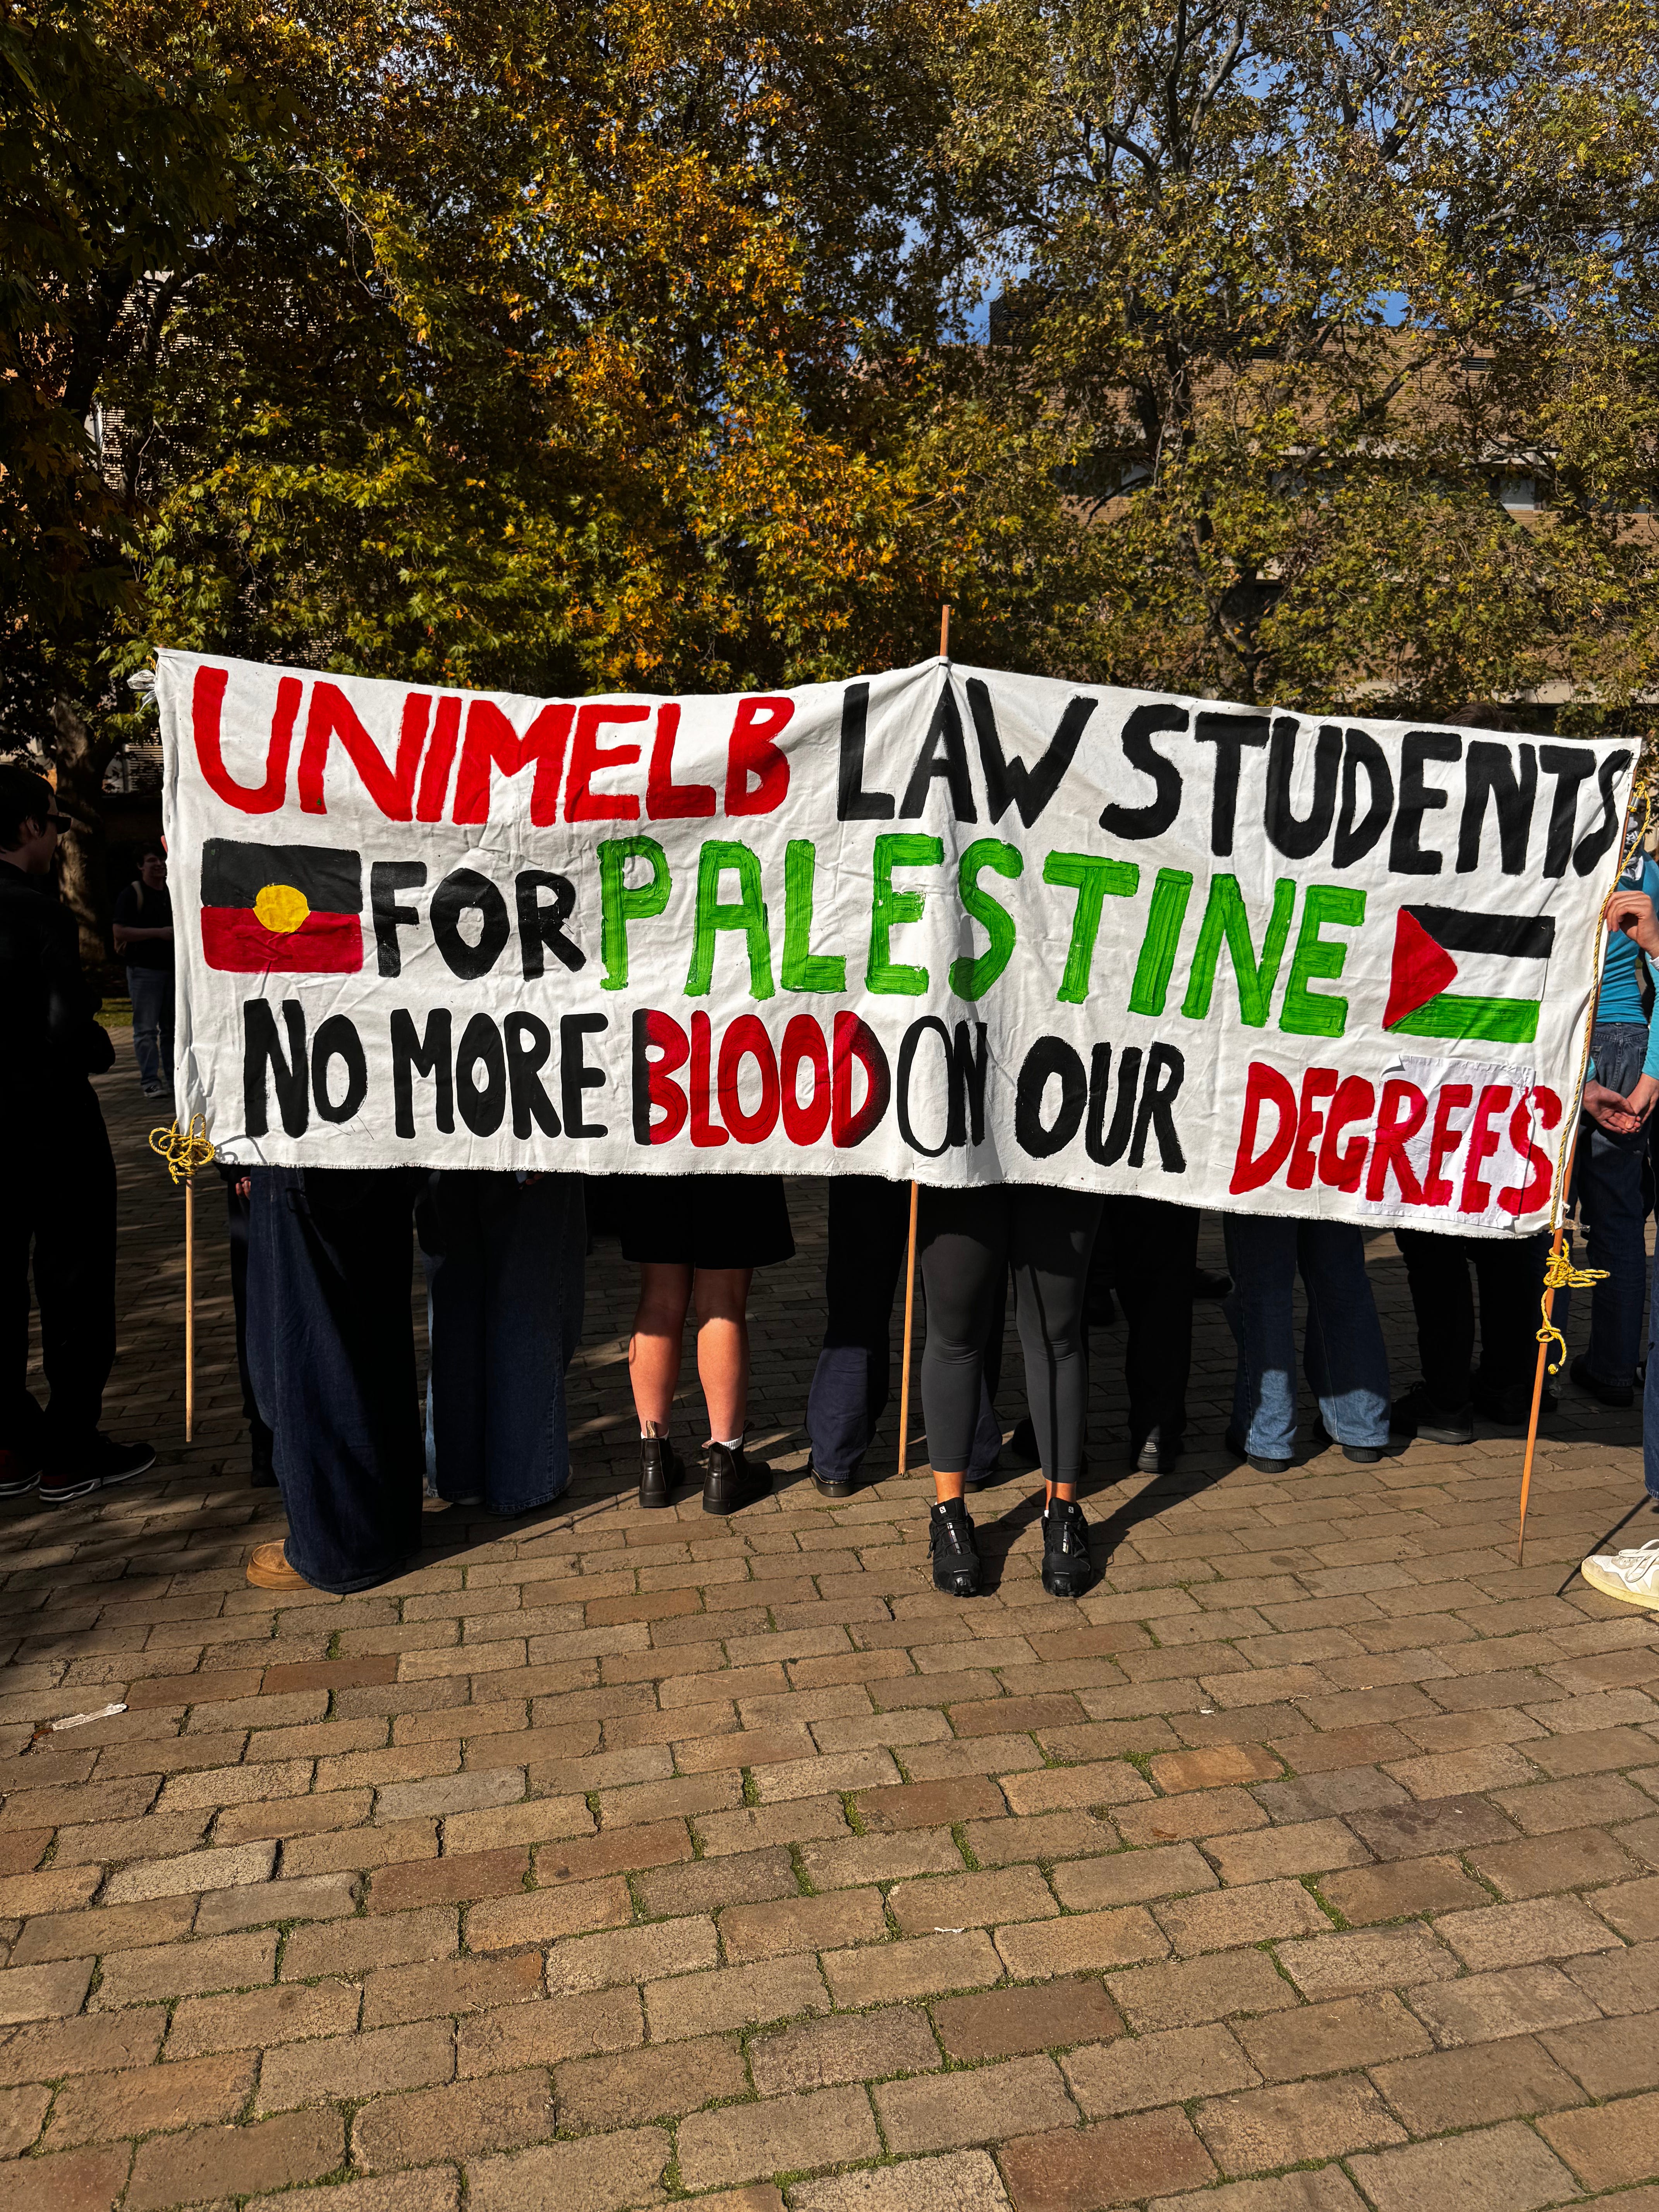 UNIMELB LAW STUDENTS
FOR PALESTINE
NO MORE BLOOD ON OUR DEGREES